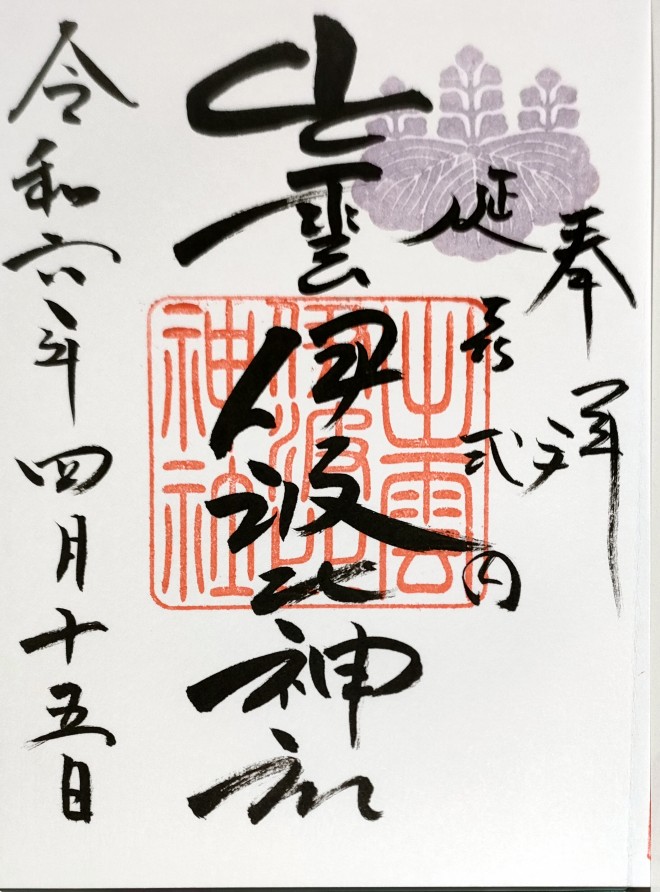 奉拝
延喜式内
出雲伊波比神社
出雲
伊波比
神社
令和六年四月十五日